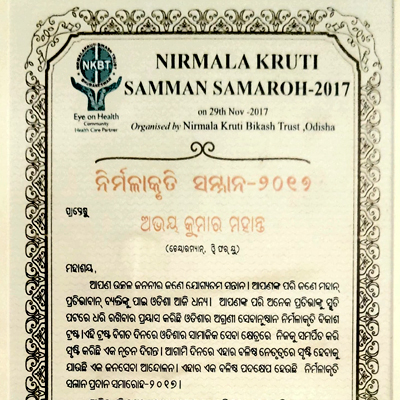 NKBT
Eye on Health
Community
Health Care Partner
NIRMALA KRUTI
SAMMAN SAMAROH-2017
on 29th Nov -2017
Organised by Nirmala Kruti Bikash Trust ,Odisha
ନିର୍ମଳାକୃତି ସମ୍ମାନ-୨୦୧୭
ପ୍ରାପ୍ତେଷୁ
ଅଭୟ କୁମାର ମହାନ୍ତ
(ଚେୟାରମ୍ୟାନ୍, ଟ୍ୱି ଫର୍ ୟୁ)
ମହାଶୟ,
ଆପଣ ଉତ୍କଳ ଜନନୀର ଜଣେ ଯୋଗ୍ୟତମ ସନ୍ତାନ। ଆପଣଙ୍କ ପରି ଜଣେ ମହାନ୍
ପ୍ରତିଭାବାନ୍ ବ୍ୟକ୍ତିଙ୍କୁ ପାଇ ଓଡିଶା ଆଜି ଧନ୍ୟ। ଆପଣଙ୍କ ପରି ଅନେକ ପ୍ରତିଭାଙ୍କୁ ସ୍ମୃତି
ପଟରେ ଧରି ରଖିବାର ପ୍ରୟାସ କରିଛି ଓଡିଶାର ଅଗ୍ରଣୀ ସେବାନୁଷ୍ଠାନ ନିର୍ମଳାକୃତି ବିକାଶ
ଟ୍ରଷ୍ଟ।ଏହି ଟ୍ରଷ୍ଟ ବିଗତ ଦିନରେ ଓଡିଶାର ସାମାଜିକ ସେବା କ୍ଷେତ୍ରରେ ନିଜକୁ ସମର୍ପିତ କରି
ସୃଷ୍ଟି କରିଛି ଏକ ନୂତନ ଦିଗନ୍ତ। ଆଗାମି ଦିନରେ ଏହାର ବଳିଷ୍ଠ ନେତୃତ୍ୱରେ ସୃଷ୍ଟି ହେବାକୁ
ଯାଉଛି ଏକ ଜନସେବା ଆନ୍ଦୋଳନ। ଏହାର ଏକ ବଳିଷ୍ଠ ପଦକ୍ଷେପ ହେଉଛି ନିର୍ମଳାକୃତି
ସମ୍ମାନ ପ୍ରଦାନ ସମାରୋହ-୨୦୧୭।